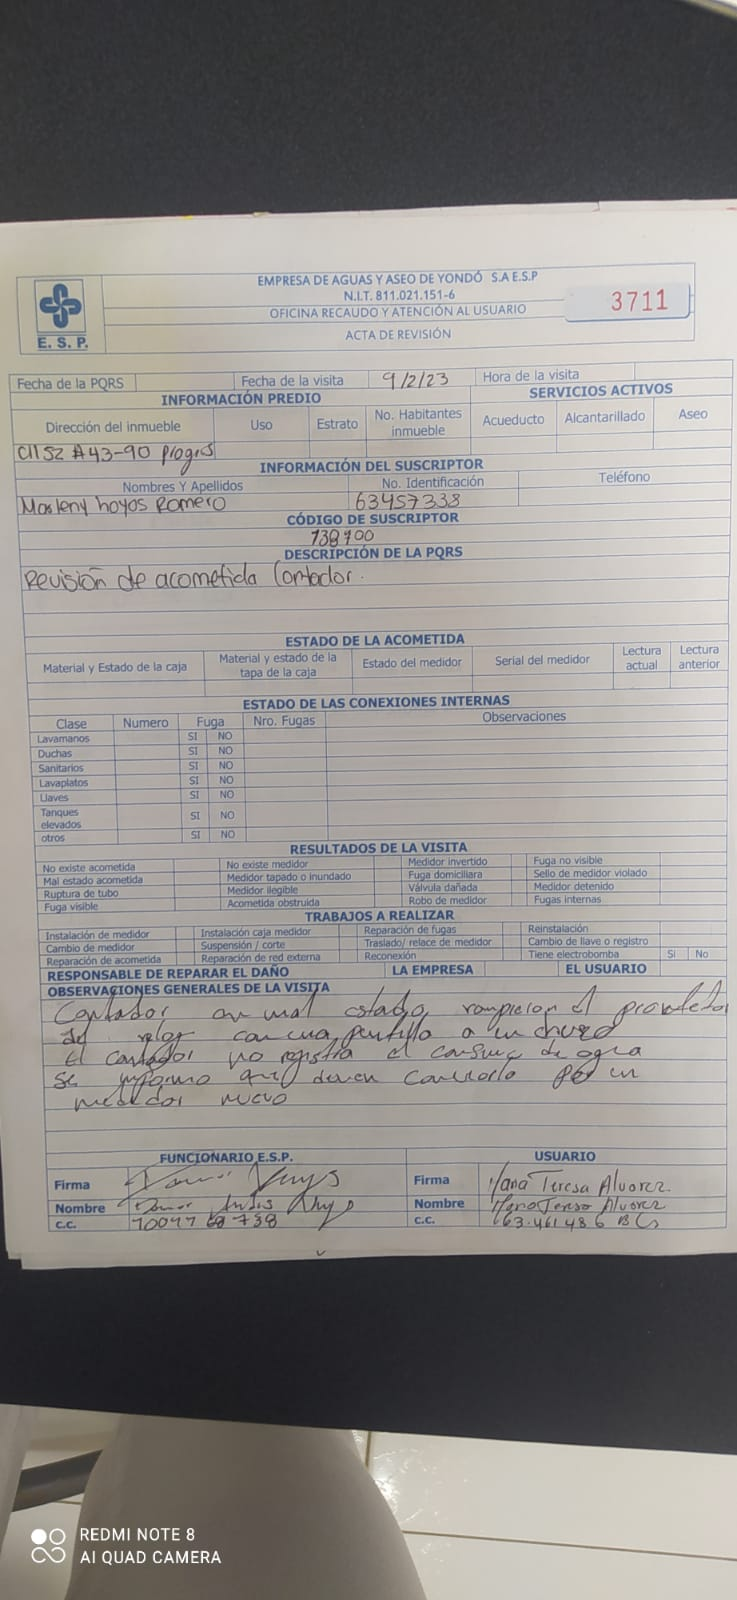 EMPRESA DE AGUAS Y ASEO DE YONDÓ S.A E.S.P
N.I.T. 811.021.151-6
OFICINA RECAUDO Y ATENCIÓN AL USUARIO
ACTA DE REVISIÓN
E. S. P.
3711
Fecha de la PQRS Fecha de la visita 9/2/23 Hora de la visita
INFORMACIÓN PREDIO SERVICIOS ACTIVOS
Dirección del inmueble Uso Estrato No. Habitantes inmueble Acueducto Alcantarillado Aseo
Cll 52 #43-90 progres
INFORMACIÓN DEL SUSCRIPTOR
Nombres Y Apellidos No. Identificación Teléfono
Marleny hoyos Romero 63457338
CÓDIGO DE SUSCRIPTOR
DESCRIPCIÓN DE LA PQRS
Revisión de acometida Contador.
ESTADO DE LA ACOMETIDA
Material y Estado de la caja Material y estado de la tapa de la caja Estado del medidor Serial del medidor Lectura actual Lectura anterior
ESTADO DE LAS CONEXIONES INTERNAS
Clase Numero Fuga Nro. Fugas Observaciones
Lavamanos SI NO
Duchas SI NO
Sanitarios SI NO
Lavaplatos SI NO
Llaves SI NO
Tanques elevados SI NO
otros SI NO
RESULTADOS DE LA VISITA
No existe acometida No existe medidor Medidor invertido Fuga no visible
Mal estado acometida Medidor tapado o inundado Fuga domiciliara Sello de medidor violado
Ruptura de tubo Medidor ilegible Válvula dañada Medidor detenido
Fuga visible Acometida obstruida Robo de medidor Fugas internas
TRABAJOS A REALIZAR
Instalación de medidor Instalación caja medidor Reparación de fugas Reinstalación
Cambio de medidor Suspensión / corte Traslado/ relace de medidor Cambio de llave o registro
Reparación de acometida Reparación de red externa Reconexión Tiene electrobomba Si No
RESPONSABLE DE REPARAR EL DAÑO LA EMPRESA EL USUARIO
OBSERVACIONES GENERALES DE LA VISITA
Contador en mal estado, rompieron el
del reloj con una puntilla o un chuzo
El contador no registra el consumo de agua
se informo que deven por un
medidor nuevo
FUNCIONARIO E.S.P. USUARIO
Firma Firma Maria Teresa Alvarez
Nombre Nombre Maria Teresa Alvarez
C.C. C.C. 63.461486 BCa
REDMI NOTE 8
AI QUAD CAMERA